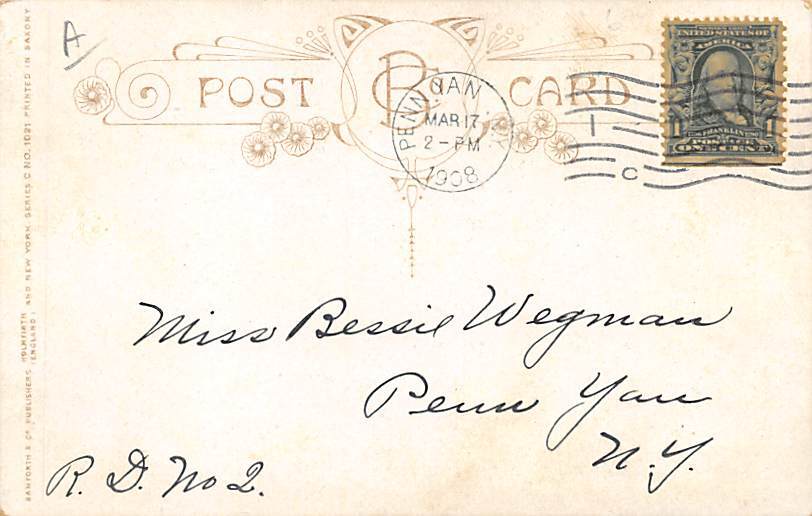 A
POST CARD
PENN YAN
MAR 17
2-PM
1908
1
C
UNITED STATES OF
AMERICA
1 FRANKLIN 1
POSTAGE
ONE CENT
Miss Bessie Wegman
Penn Yan
N.Y.
R. D. No 2.
BAMFORTH & CO PUBLISHERS HOLMFIRTH (ENGLAND) AND NEW YORK. SERIES C NO. 1021 PRINTED IN SAXONY